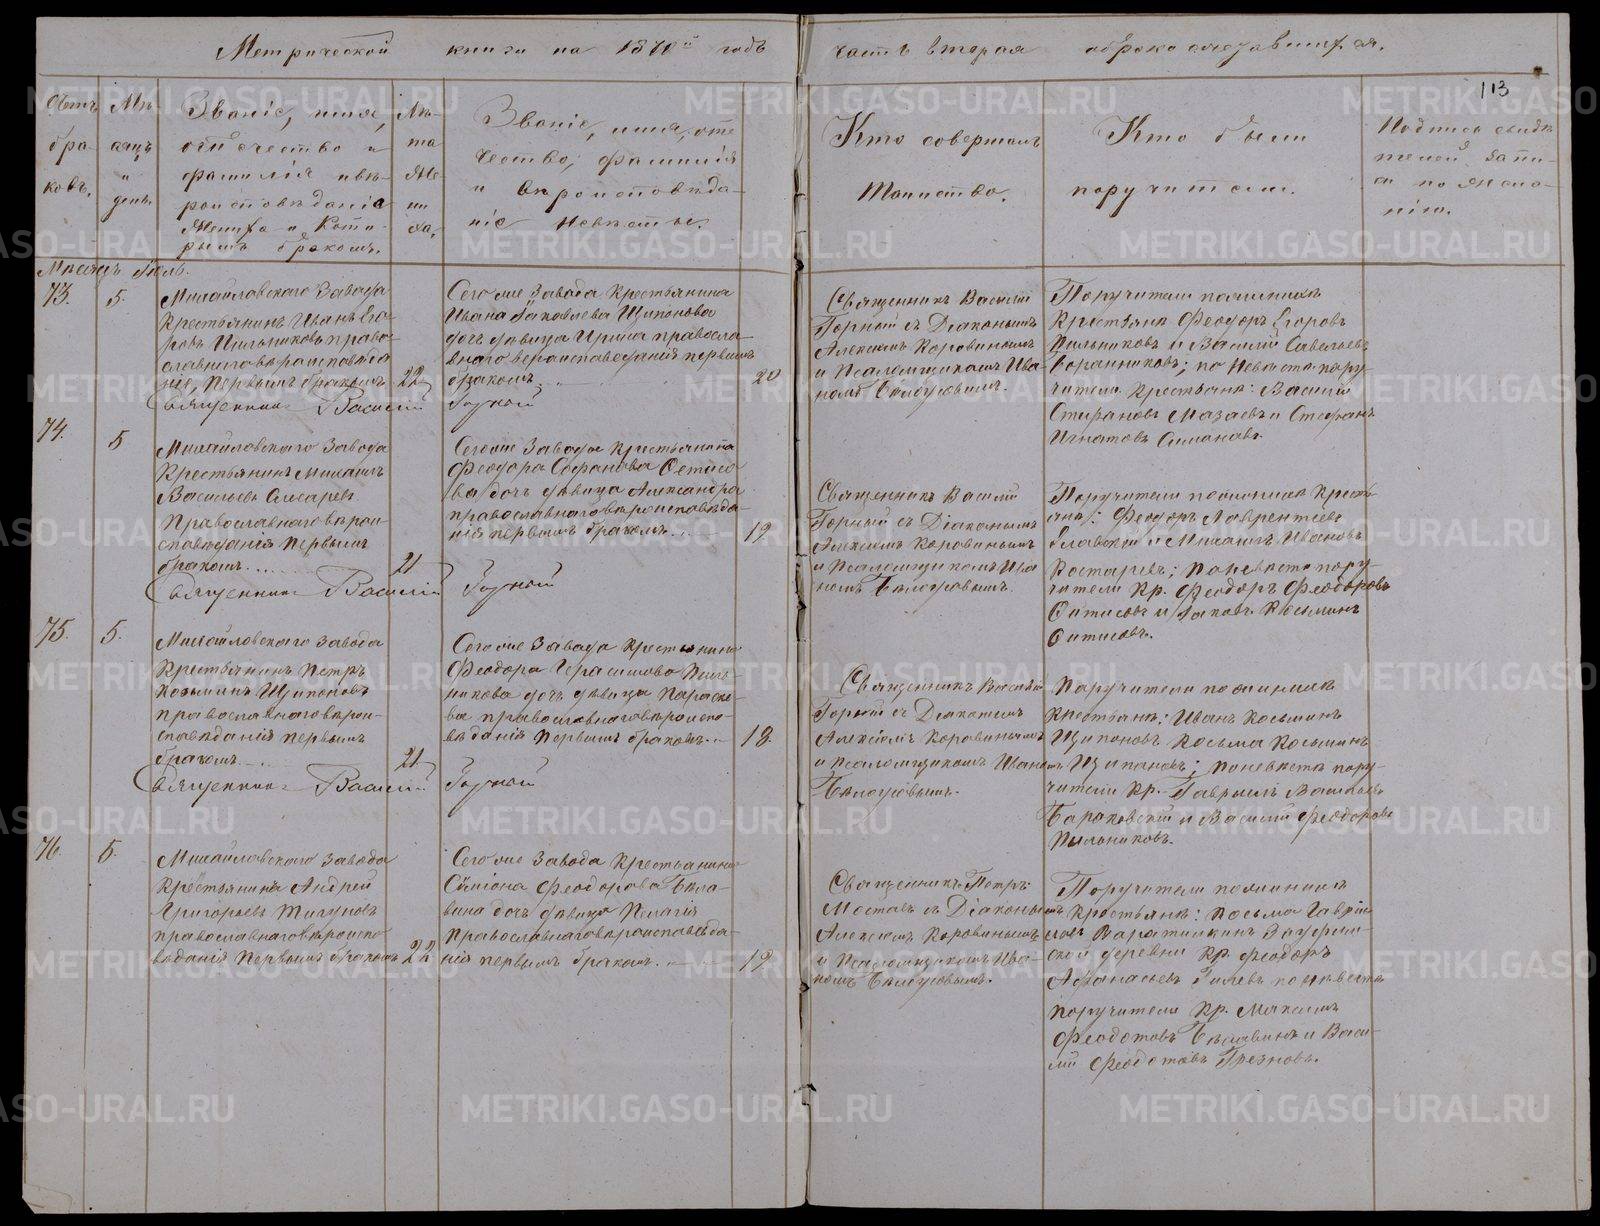 Метрической книги на 1870й годъ
часть вторая о бракосочетавшихся.
113
Счетъ
бра-
ковъ.
Мѣ-
сяцъ
и
день.
Званіе, имя,
отчество и
фамилія и вѣ-
роисповѣданіе
Жениха и Кото-
рымъ бракомъ.
Лѣ-
та
Же-
ни
ха.
Званіе, имя, оте
чество, фамилія
и вѣроисповѣда-
ніе невѣсты.
Кто совершалъ
Таинство.
Кто были
поручители.
Подпись свидѣ
телей запи-
си по жела-
нію.
Месяцъ Іюль.
73.
5.
Михайловскаго Завода
Крестьянинъ Иванъ Его
ровъ Пильниковъ право
славнаго вѣроисповѣда
нія, первымъ бракомъ
22
Священникъ Василій Горной
Сегоже Завода Крестьянина
Ивана Яковлева Щипанова
дочь дѣвица Ирина правосла
внаго вероисповеданія первымъ
бракомъ
20
Священникъ Василій
Горной съ Діакономъ
Алексіемъ Коровинымъ
и Псаломщикомъ Ива
номъ Бѣлоусовымъ.
Поручители по женихѣ
Крестьяне Феодоръ Егоровъ
Пильниковъ и Василій Савельевъ
по Невѣстѣ пору-
чители Крестьяне: Василій
Мазаевъ и Стефанъ
Игнатовъ
74.
5
Михайловскаго Завода
Крестьянинъ Михаилъ
Васильевъ Слесаревъ
Православнаго вѣрои-
сповѣданія первымъ
бракомъ
21
Священникъ Василій Горной
Сегоже Завода Крестьянина
Феодора
дочь дѣвица Александра
православнаго вѣроисповѣда-
нія первымъ бракомъ
19
Священникъ Василій
Горный съ Діакономъ
Алексіемъ Коровинымъ
и Псаломщикомъ Ива
номъ Бѣлоусовымъ.
Поручители по женихѣ Кресть
яне: Феодоръ Лаврентіевъ
и Михаилъ Ивановъ
по невѣстѣ пору-
чители Кр. Феодоръ Феодоровъ
и Яковъ Косьминъ
75.
5.
Михайловскаго Завода
Крестьянинъ Петръ
Козьминъ Щипановъ
православнаго вѣрои-
споведанія первымъ
бракомъ
21
Священникъ Василій Горной
Сегоже Завода Крестьянина
Феодора Герасимова Пиль-
никова дочь дѣвица Параске-
ва православнаго вѣроиспо-
вѣданія первымъ бракомъ
18.
Священникъ Василій
Горной съ Діакономъ
Алексіемъ Коровинымъ
и псаломщикомъ Иваномъ
Бѣлоусовымъ.
Поручители по женихѣ
Крестьяне: Иванъ Косьминъ
Щипановъ Косьма Косьминъ
Щипановъ; по невѣстѣ пору-
чители Кр. Гавріилъ Васильевъ
и Василій Феодоровъ
Пильниковъ.
76.
5.
Михайловскаго Завода
Крестьянинъ Андрей
Григорьевъ
православнаго вѣроиспо
веданія первымъ бракомъ
22
Сегоже Завода Крестьянина
Симіона Феодорова
дочь дѣвица Пелагія
Православнаго вѣроисповѣда-
нія первымъ бракомъ
19
Священникъ Петръ
съ Діакономъ
Алексіемъ Коровинымъ
и Псаломщикомъ Ива
номъ Бѣлоусовымъ.
Поручители по женихѣ
Крестьяне: Косьма Гаврі
ловъ
деревни Кр. Феодоръ
Афанасьевъ по невѣстѣ
поручители Кр. Максимъ
Феодотовъ и Васи-
лій Феодотовъ
METRIKI.GASO-URAL.RU